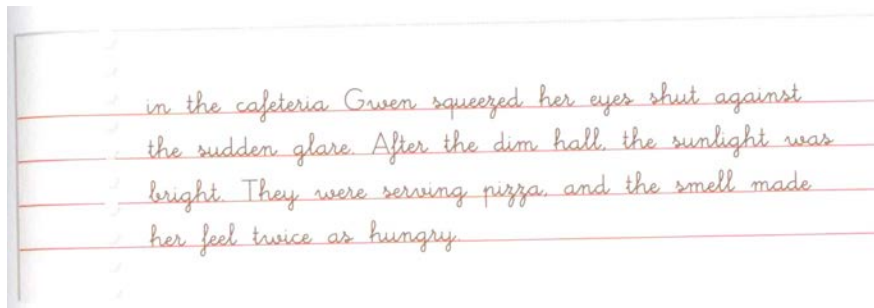 in the cafeteria Gwen squeezed her eyes shut against
the sudden glare. After the dim hall, the sunlight was
bright. They were serving pizza, and the smell made
her feel twice as hungry.